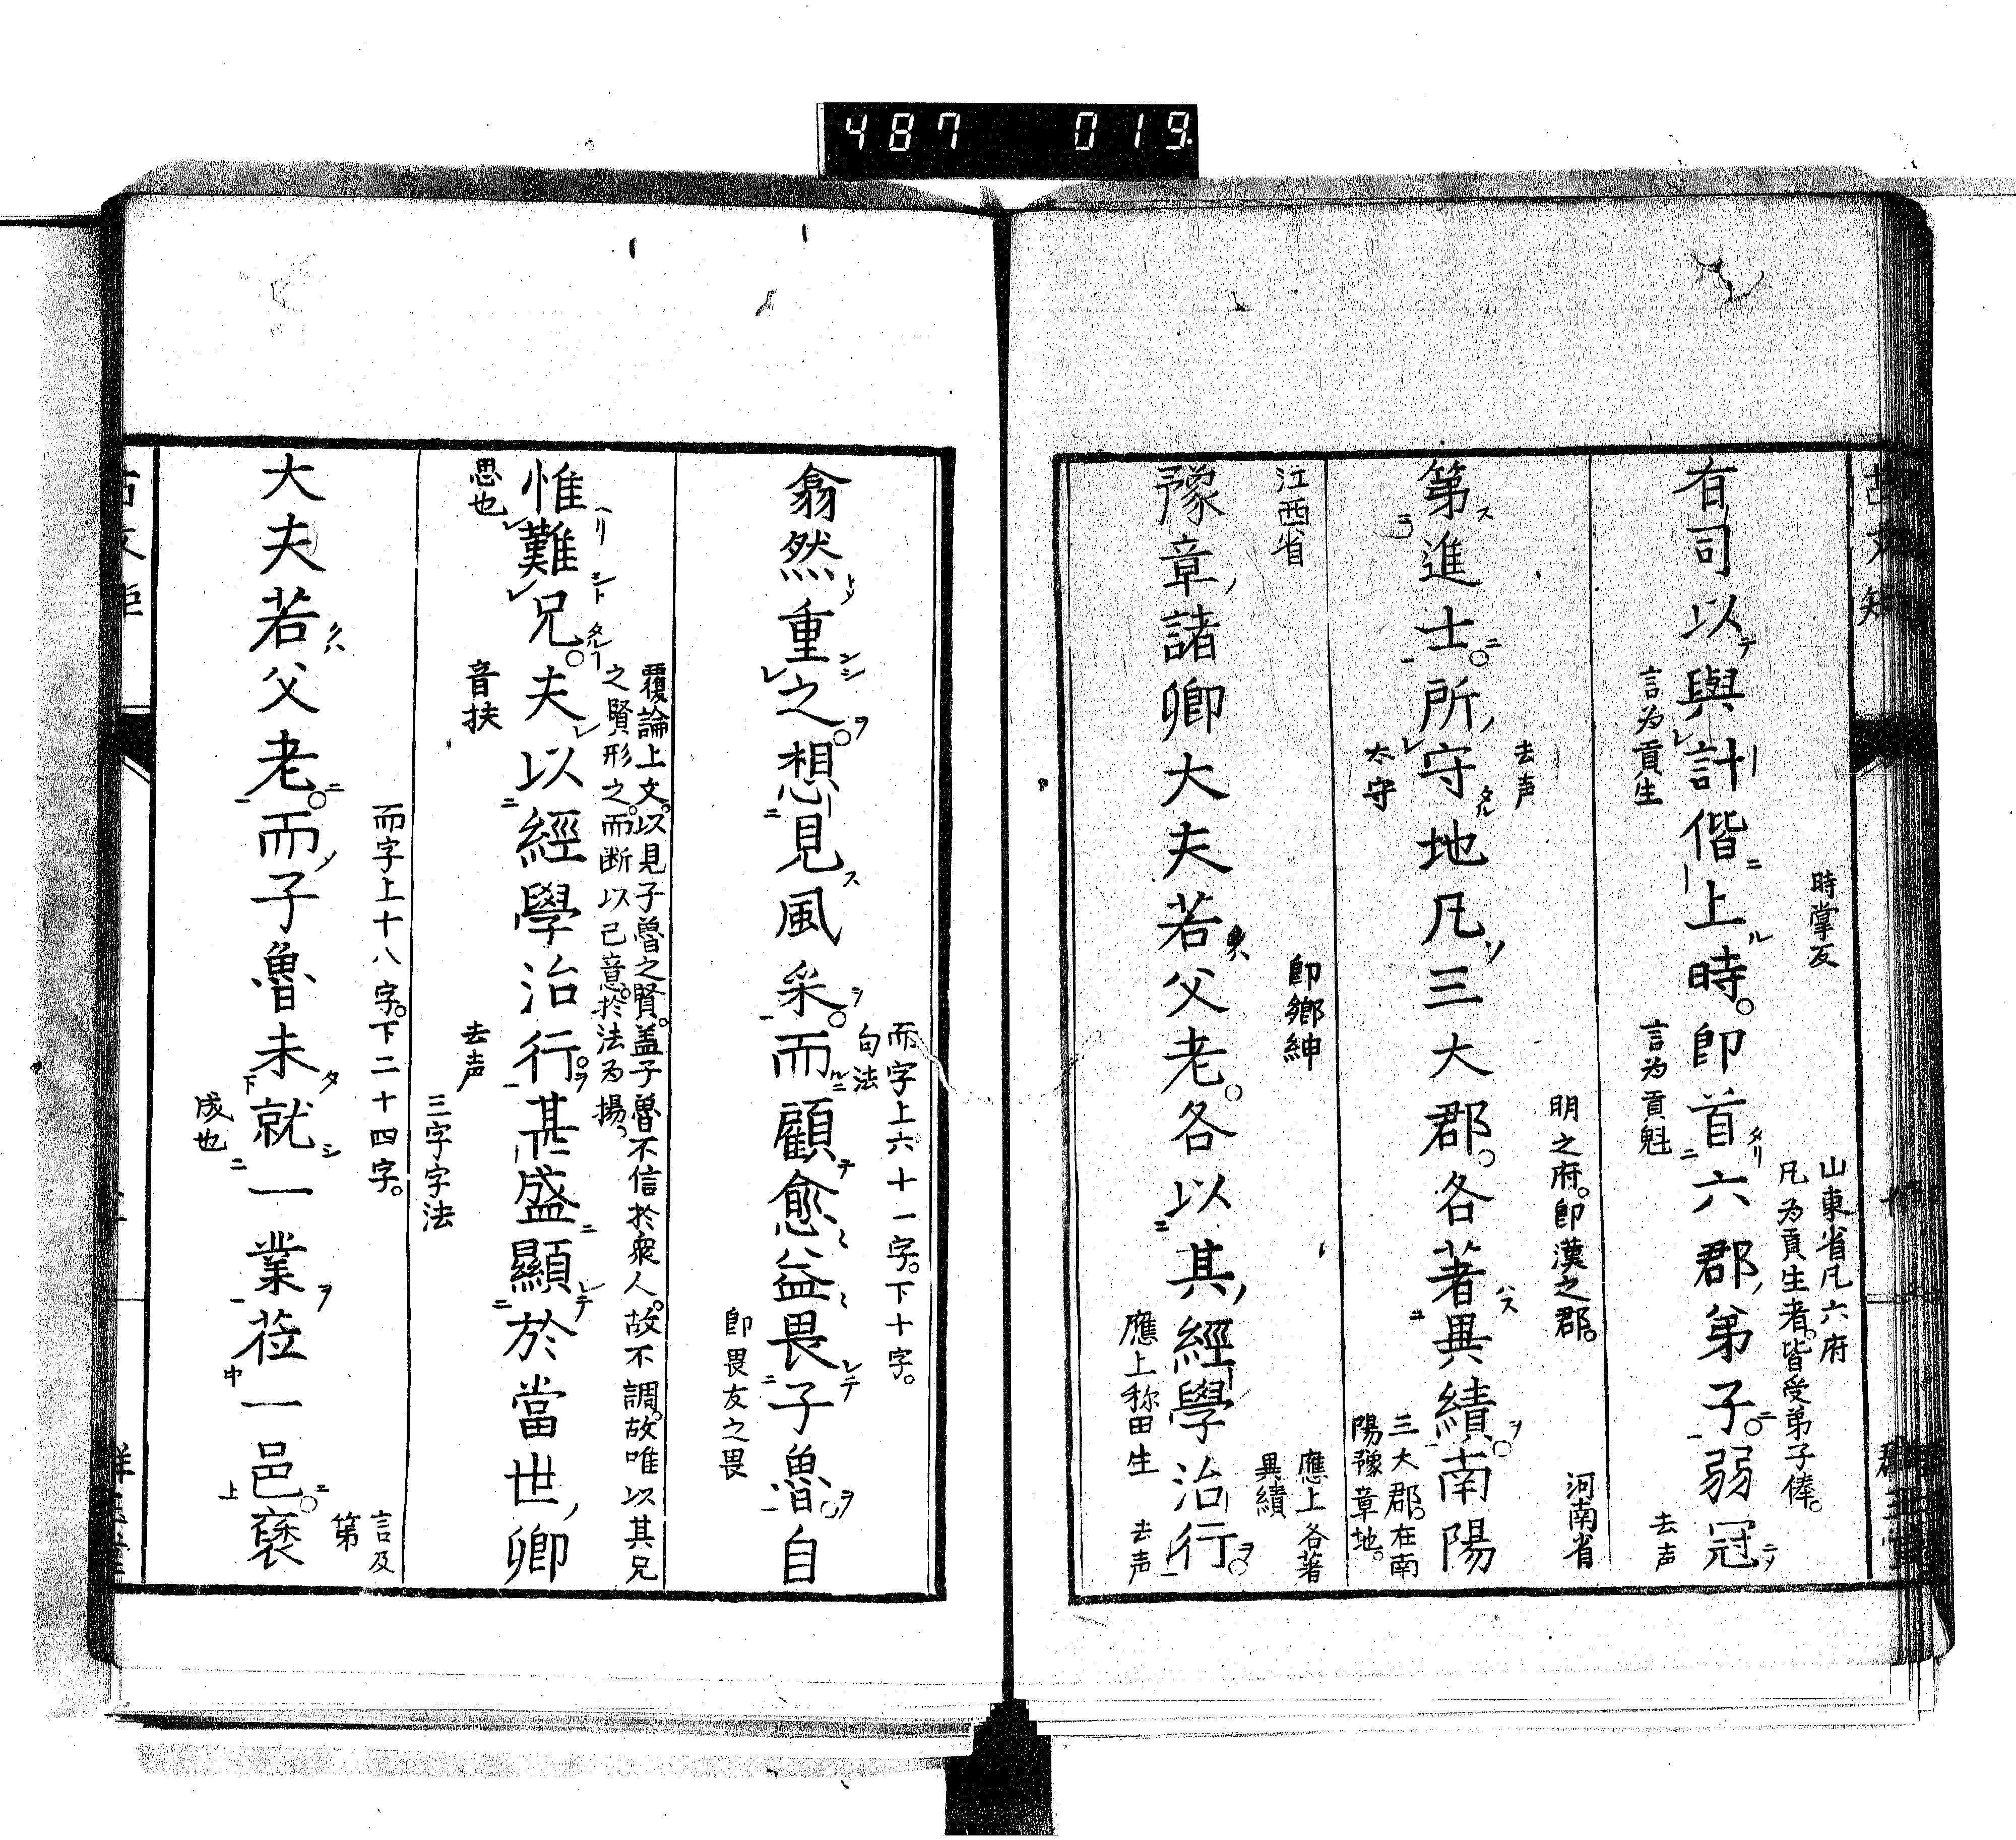 487 019.
時掌反
山東省凡六府
凡为貢生者。皆受弟子俸。
有司以與計偕上時。即首六郡弟子。弱冠
言为貢生
言为貢魁
去声
去声
明之府。即漢之郡。
河南省
第進士。所守地凡三大郡。各著異績。南陽
太守
三大郡。在南
陽豫章地。
江西省
即鄉紳
應上各著
異績
豫章諸卿大夫若父老。各以其經學治行。
應上称田生
去声
而字上六十一字。下十字。
句法
翕然重之。想見風采。而顧愈益畏子魯。自
即畏友之畏
覆論上文。以見子魯之賢。盖子魯不信於衆人。故不調。故唯以其兄
之賢形之。而断以己意。於法为揚。
惟難兄。夫以經學治行。甚盛顯於當世，卿
思也
音扶
去声
三字字法
而字上十八字。下二十四字。
言及
第
大夫若父老。而子魯未就一業莅一邑。褎
成也